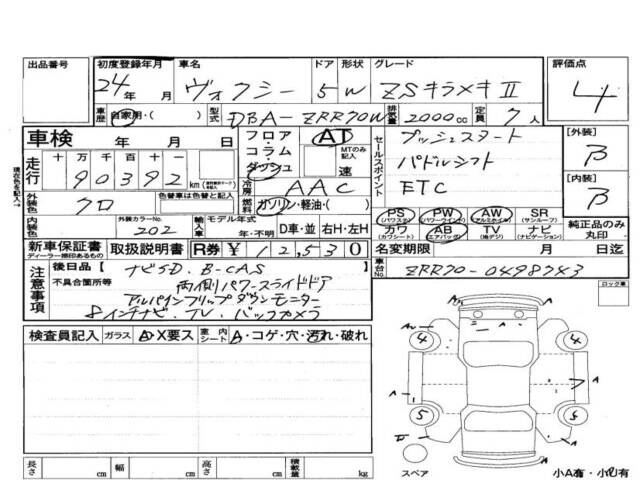 出品番号 初度登録年月 車名 ドア 形状 グレード 評価点
24年 月 ヴォクシー 5 W ZSキラメキⅡ 4
車歴 自家用・( ) 型式 DBA-ZRR70W 排気量 2000cc 定員 7人
車検 年 月 日 フロア・コラム・ダッシュ AT MTのみ記入 速 セールスポイント プッシュスタート [外装] B
走行 十 万 千 百 十 一 パドルシフト
90392 km 冷房 AAC ETC [内装] B
現在色を記入→ 外装色 クロ 色替車は色替と記入 燃料 ガソリン・軽油・( )
内装色 外装カラーNo. 202 輸入車 モデル年式 年・不明 D車・並 右H・左H
PS (パワステ) PW (パワーウインド) AW (アルミホイル) SR (サンルーフ)
カワ (カワシート) AB (エアバッグ) TV (地デジ) ナビ (ナビゲーション) 純正品のみ丸印
新車保証書 ディーラー捺印あるもの 取扱説明書 R券 ¥12,530 名変期限 月 日迄
注意事項 後日品 [ ナビSD、B-CAS 車台No. ZRR70-0498743
不具合箇所等 両側パワースライドドア
アルパインフリップダウンモニター
8インチナビ、TV、バックカメラ
ロック車
検査員記入 ガラス A・X要ス 室内シート A・コゲ・穴・汚れ・破れ
A
4 4
A A
5 5
A
スペア 小A有・小U有
長さ cm 幅 cm 高さ cm 積載量 kg